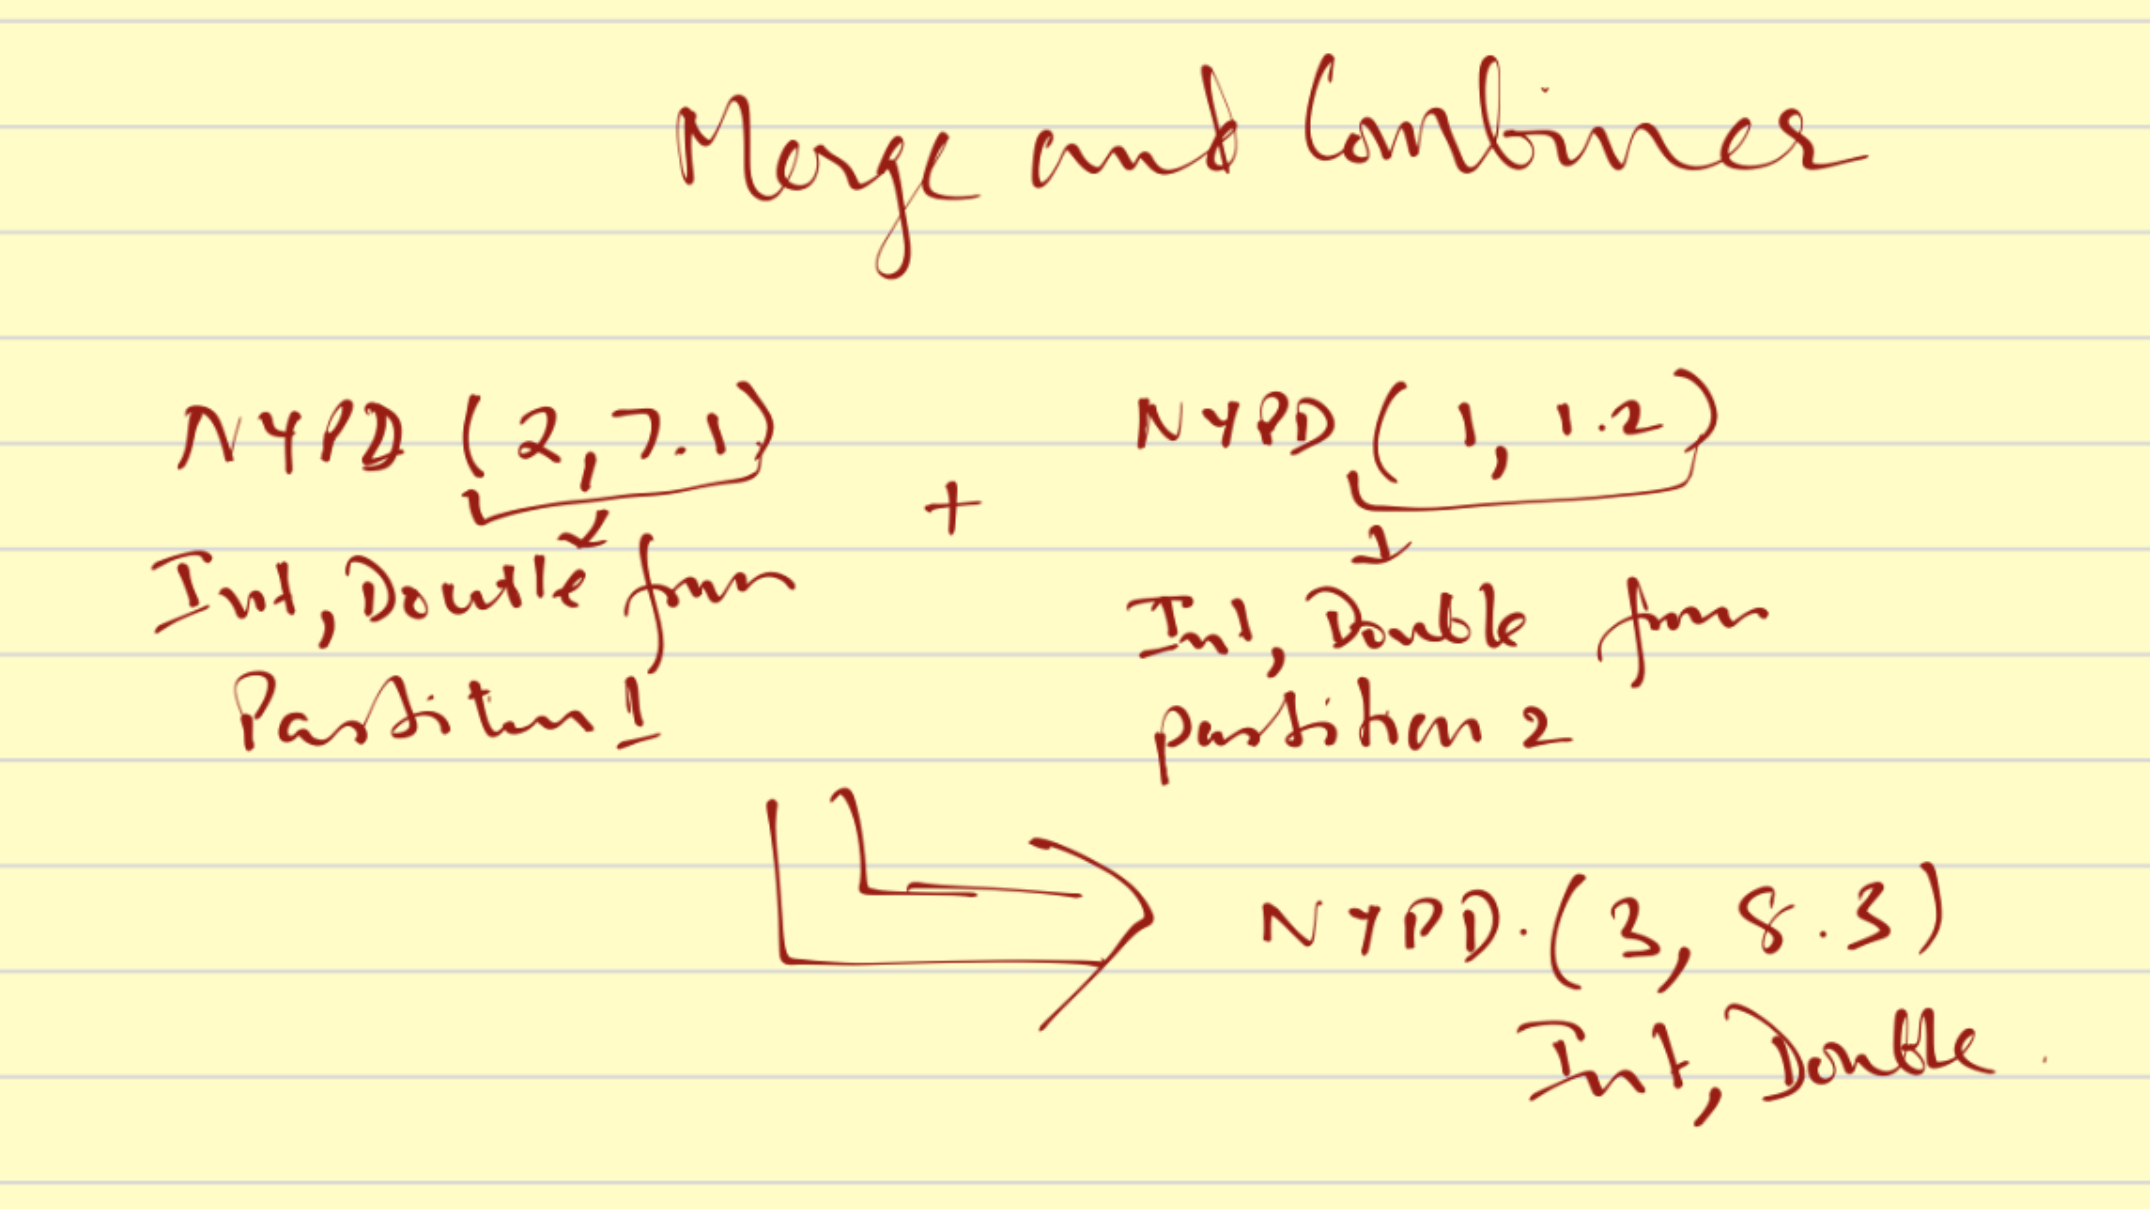 Merge and Combiner
NYPD (2, 7.1) + NYPD (1, 1.2)
Int, Double from
Partition 1
Int, Double from
partition 2
NYPD. (3, 8.3)
Int, Double.